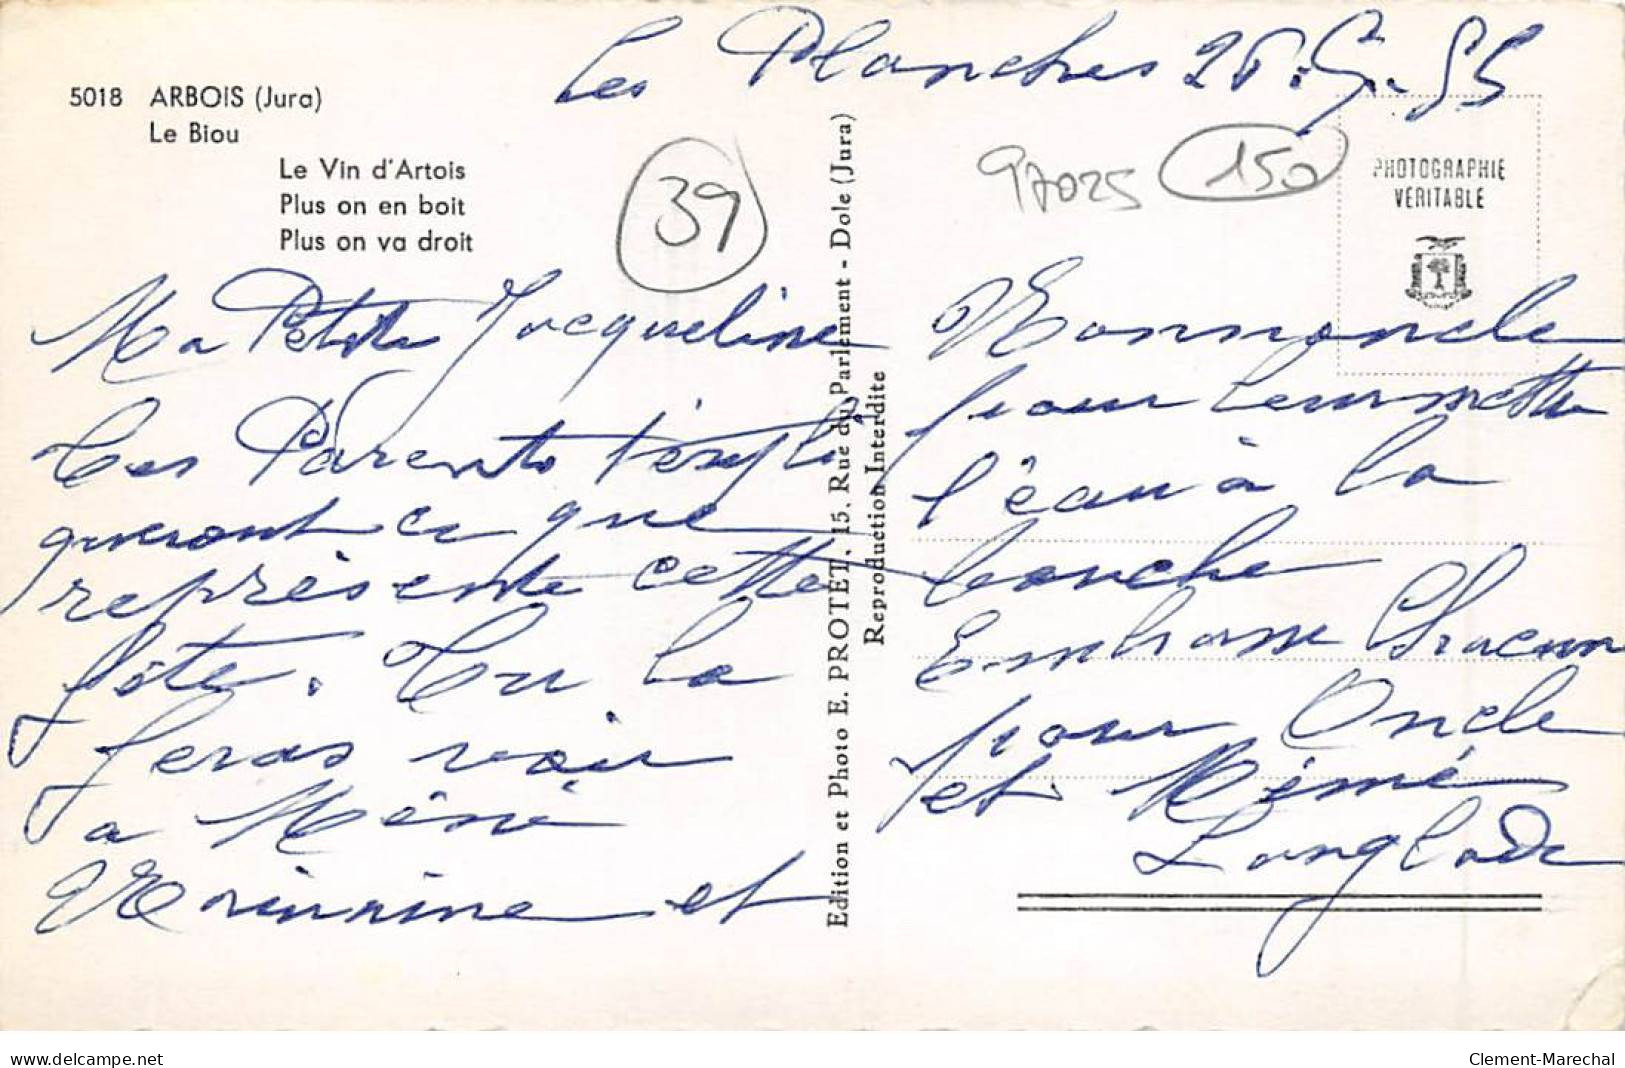 Les Planches 26.9.55
5018 ARBOIS (Jura)
Le Biou
Le Vin d'Artois
Plus on en boit
Plus on va droit
39
97025 150
PHOTOGRAPHIE
VERITABLE
Edition et Photo E. PROTET, 15, Rue du Parlement - Dole (Jura)
Reproduction Interdite
Ma Petite Jacqueline
Tes Parents t'expli
queront ce que
représente cette
fête. Tu la
feras voir
a Mémé
et
Monnoncle
pour leur mettre
l'eau à la
bouche
Embrasse Chacun
pour Oncle
et Mémé
Langlade
www.delcampe.net
Clement-Marechal